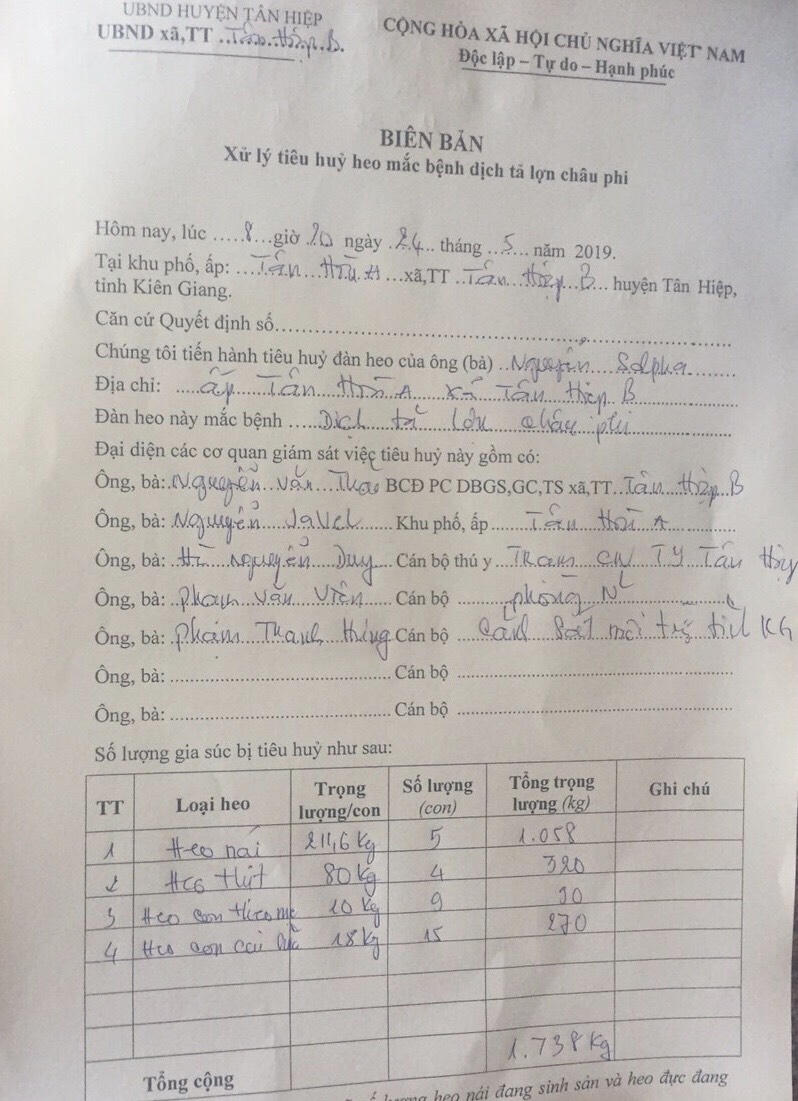 UBND HUYỆN TÂN HIỆP
UBND xã,TT ..Tân..Hiệp.B.
CỘNG HÒA XÃ HỘI CHỦ NGHĨA VIỆT NAM
Độc lập – Tự do – Hạnh phúc
BIÊN BẢN
Xử lý tiêu huỷ heo mắc bệnh dịch tả lợn châu phi
Hôm nay, lúc .....8...giờ .20 ngày .24.. tháng ..5... năm 2019.
Tại khu phố, ấp: ....Tân...Hòa.A ...xã,TT ..Tân...Hiệp..B... huyện Tân Hiệp,
tỉnh Kiên Giang.
Căn cứ Quyết định số..........
Chúng tôi tiến hành tiêu huỷ đàn heo của ông (bà) ..Nguyễn.... Solpha.......
Địa chỉ: .....ấp...Tân...Hòa A...xã...Tân...Hiệp.B..........
Đàn heo này mắc bệnh ....Dịch...tả...lợn...châu...phi..........
Đại diện các cơ quan giám sát việc tiêu huỷ này gồm có:
Ông, bà:.Nguyễn...Văn...Thao BCĐ PC DBGS,GC,TS xã,TT..Tân...Hiệp.B
Ông, bà:.Nguyễn....Javel.... Khu phố, ấp.......Tân...Hòa A..........
Ông, bà: ..Hồ...Nguyễn...Duy... Cán bộ thú y ...Trạm...CN TY Tân Hiệp
Ông, bà: .Phạm...Văn...Viễn.... Cán bộ ..........phòng...N............
Ông, bà: .Phạm...Thanh...Hùng Cán bộ ...Cảnh...Sát...môi trg tỉnh KG
Ông, bà: .......... Cán bộ ..........
Ông, bà: .......... Cán bộ ..........
Số lượng gia súc bị tiêu huỷ như sau:
TT Loại heo Trọng lượng/con Số lượng (con) Tổng trọng lượng (kg) Ghi chú
1 Heo nái 211,6 Kg 5 1.058
2 Heo thịt 80 Kg 4 320
3 Heo con theo mẹ 10 Kg 9 90
4 Heo con cai sữa 18 Kg 15 270
Tổng cộng 1.738 Kg
lượng heo nái đang sinh sản và heo đực đang